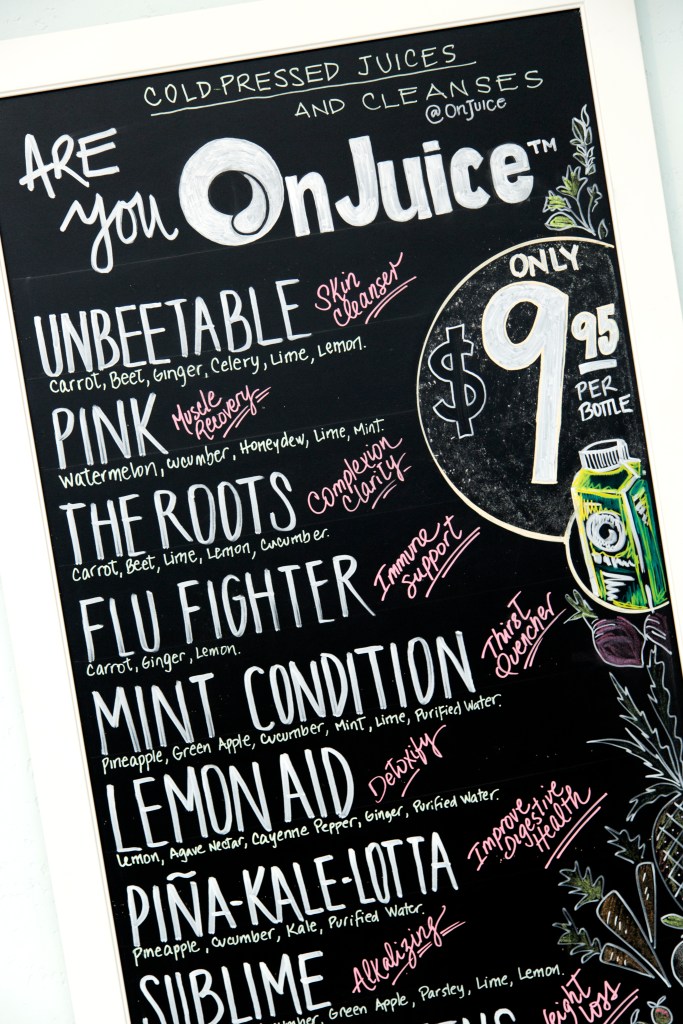 COLD-PRESSED JUICES
AND CLEANSES
@OnJuice
ARE
you OnJuice™
ONLY
$9 95
PER
BOTTLE
UNBEETABLE
Skin
Cleanser
Carrot, Beet, Ginger, Celery, Lime, Lemon.
PINK
Muscle
Recovery
Watermelon, cucumber, Honeydew, Lime, Mint.
THE ROOTS
Complexion
Clarity
Carrot, Beet, Lime, Lemon, Cucumber.
FLU FIGHTER
Immune
Support
Carrot, Ginger, Lemon.
MINT CONDITION
Thirst
Quencher
Pineapple, Green Apple, Cucumber, Mint, Lime, Purified Water.
LEMONAID
Detoxify
Lemon, Agave Nectar, Cayenne Pepper, Ginger, Purified Water.
PIÑA-KALE-LOTTA
Improve
Digestive
Health
Pineapple, Cucumber, Kale, Purified Water.
SUBLIME
Alkalizing
Green Apple, Parsley, Lime, Lemon.
Loss